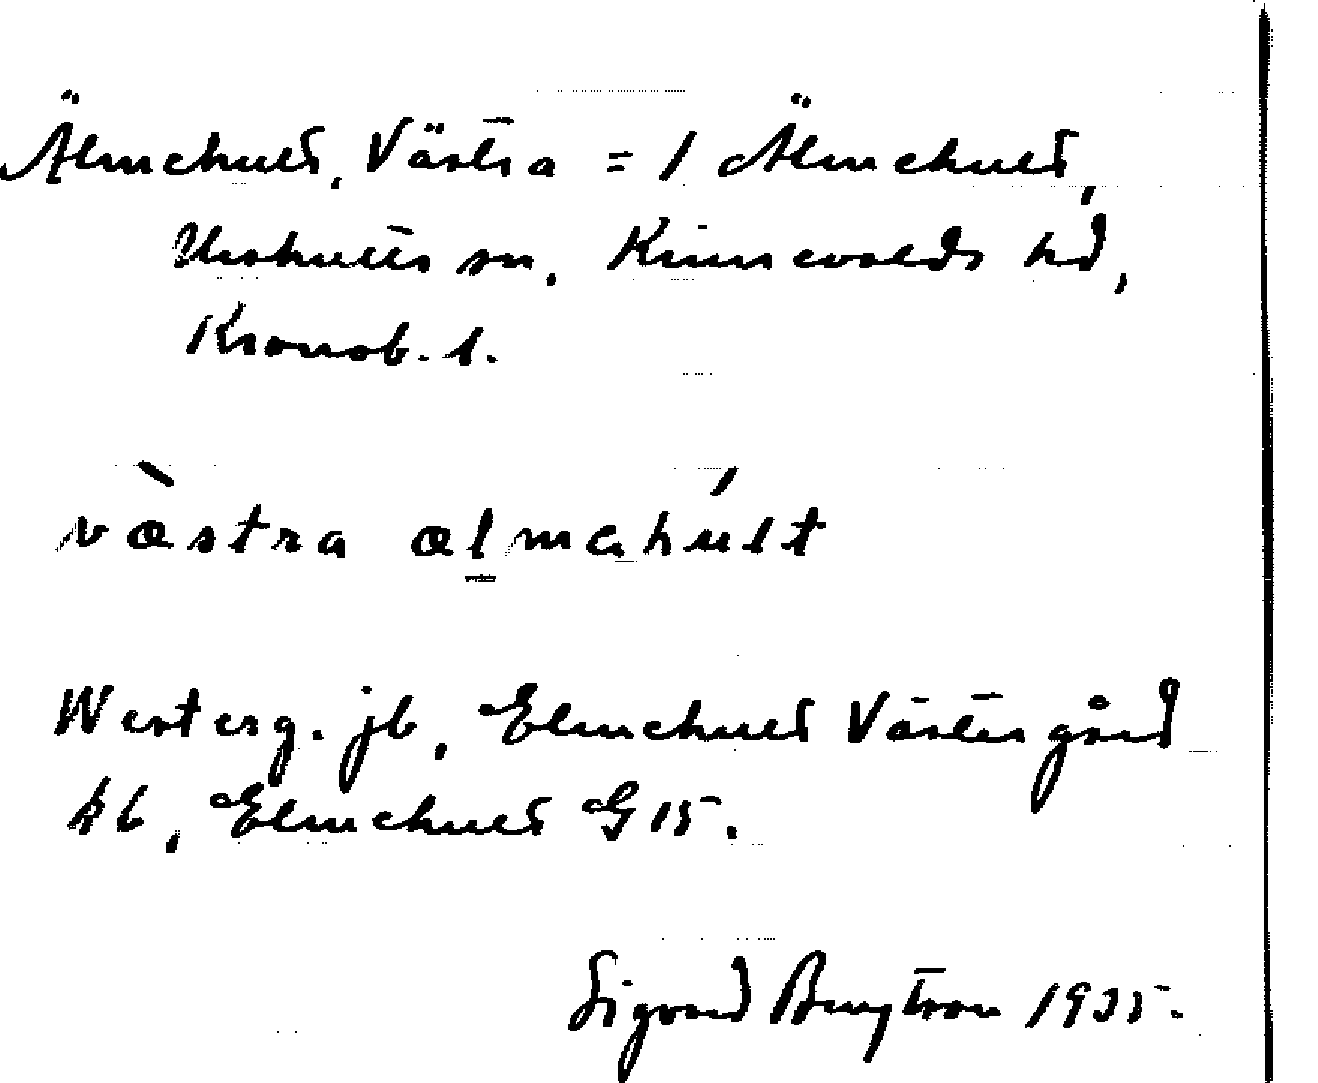 Älmehult, Västra = 1 Älmehult,
Urshults sn, Kinnevalds hd,
Kronob. l.
væ̀stra ælmahúlt
Westerg. jb, Elmehult Västergård
kb, Elmehult G 15.
Sigurd Bengtson 1935.